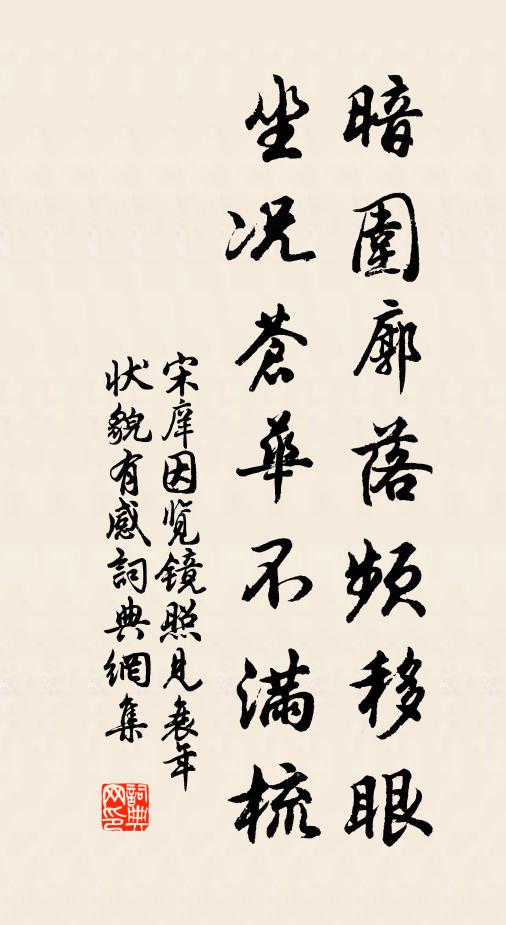 暗圍廓落頻移眼
坐况蒼華不滿梳
宋庠因览镜照見衰年
状貌有感詞典網集
詞典网印